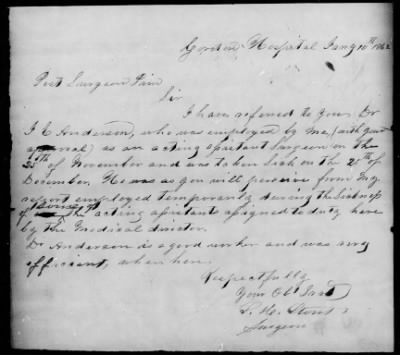 Gordon Hospital Jany 10th 1862
Post Surgeon Pim
Sir
I have referred to you Dr
J. E. Anderson, who was employed by me, (with your
approval) as an acting assistant Surgeon on the
25th of November and was taken sick on the 25th of
December. He was as you will perceive from my
report employed temporarily during the sickness
of some of the acting assistants assigned to duty here
by the Medical director.
Dr Anderson is a good worker and was very
efficient, when here.
Respectfully
Your Obt Servt
S. H. Stout
Surgeon